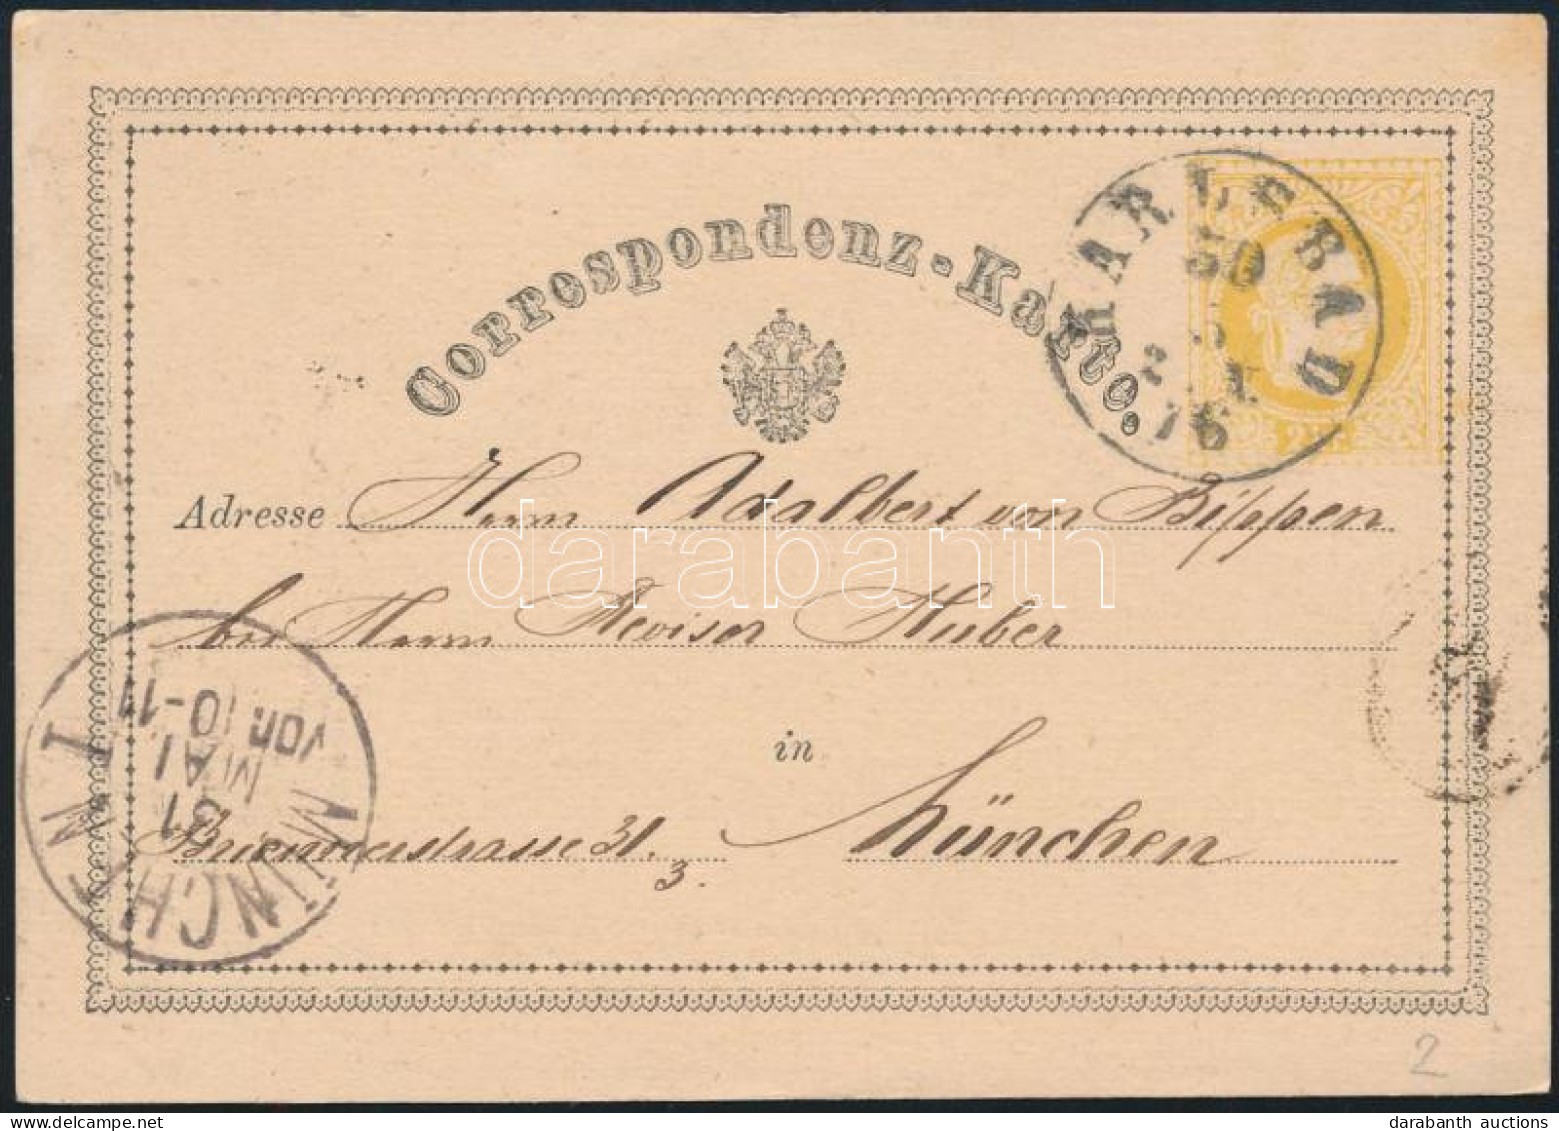 Correspondenz-Karte.
KARLSBAD
30
5
76
2 kr.
Adresse Herrn Adalbert von Bippen
bei Herrn Revisor Huber
in
Briennerstrasse 31. München
3.
MÜNCHEN I
31
MAI
VOR. 10-11
darabanth
2
darabanth auctions